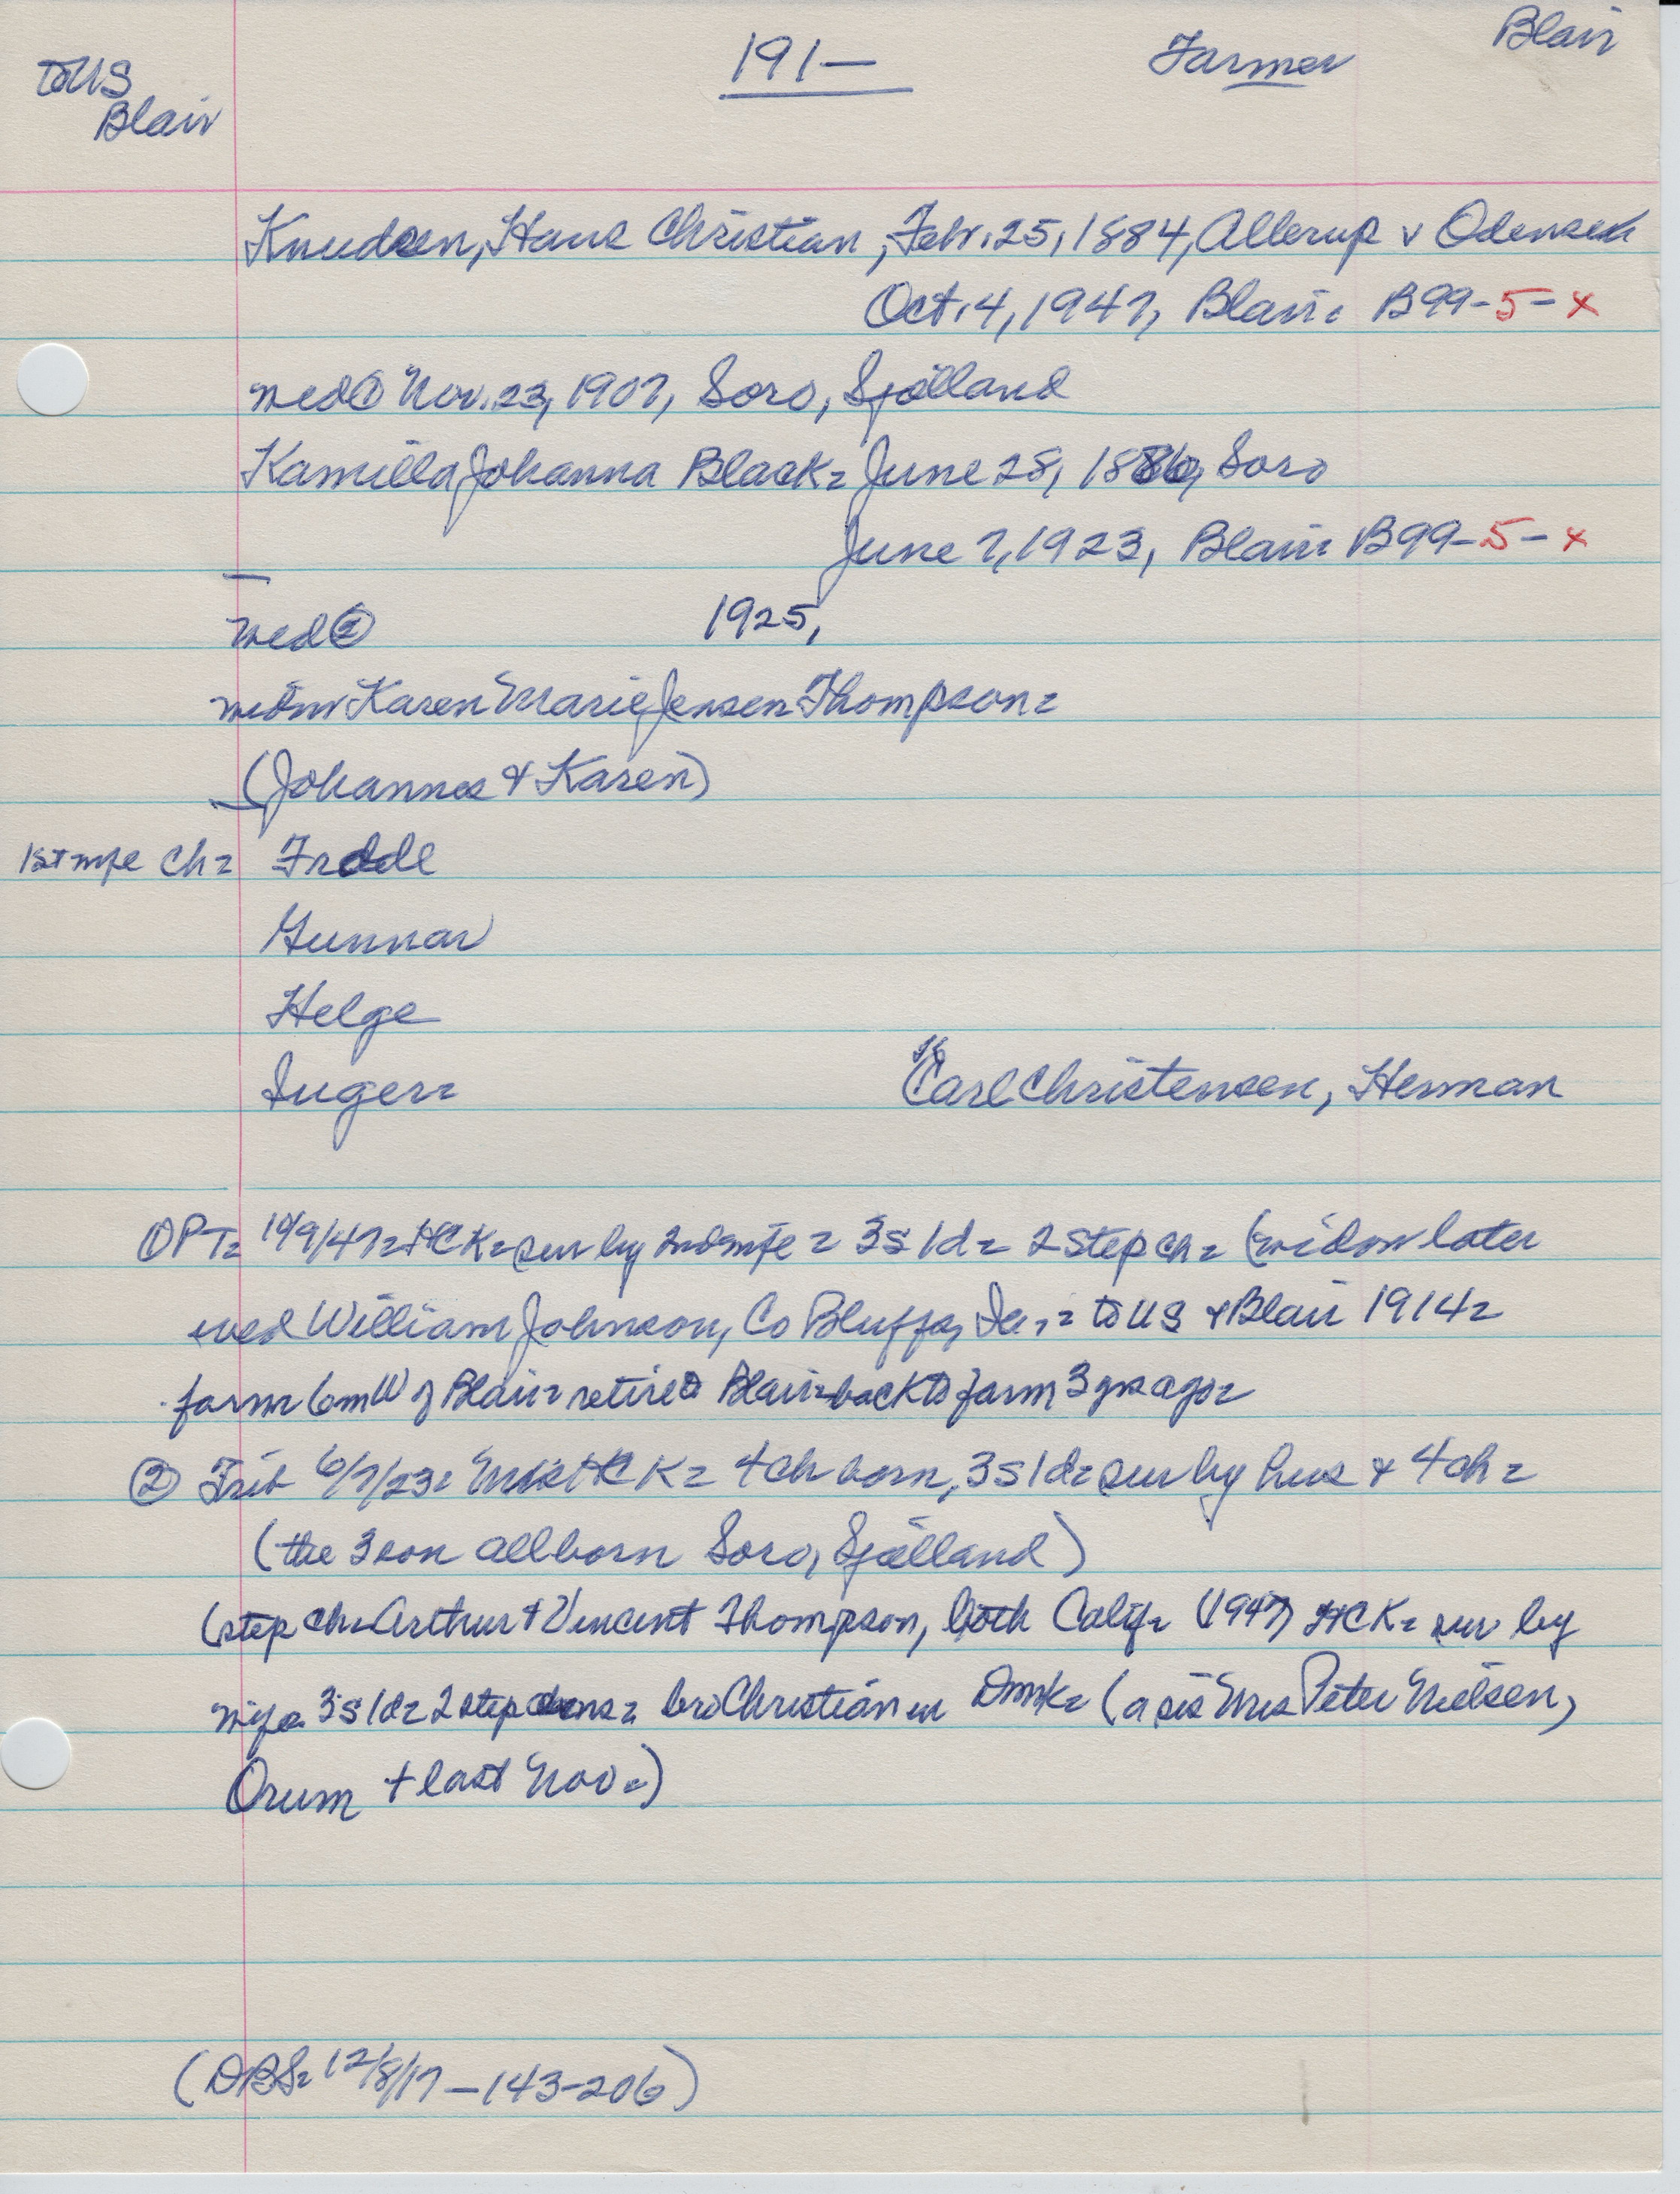 to US
Blair
191—
Farmer
Blair
Knudsen, Hans Christian, Febr. 25, 1884, Allerup v Odense
Oct. 4, 1947, Blair= B99-5-x
wed① Nov. 23, 1907, Soro, Sjælland
Kamilla Johanna Black= June 28, 1886, Soro
June 7, 1923, Blair= B99-5-x
wed② 1925,
widow Karen Marie Jensen Thompson=
(Johannes & Karen)
1st wife ch= Frode
Gunnar
Helge
Inger= Carl Christensen, Herman
OPT= 10/9/47= HCK= sur by 2nd wife = 3s 1d= 2 step ch= (widow later
wed William Johnson, Co Bluffs, Ia.,= to US & Blair 1914=
farm 6mW of Blair= retired Blair= back to farm 3 yrs ago=
② Trib 6/7/23= Mrs HCK= 4 ch born, 3s 1d= sur by hus & 4 ch=
(the 3 son all born Soro, Sjælland)
(step ch= Arthur & Vincent Thompson, both Calif= (1947) HCK= sur by
wife= 3s 1d= 2 step sons= bro Christian in Dmk= (a sis Mrs Peter Nielsen,
Orum + last Nov=)
(DBS= 12/8/17—143-206)